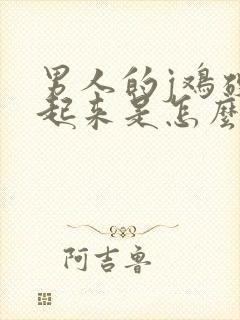 男人的j鳮硬
起来是怎麼
阿吉鲁